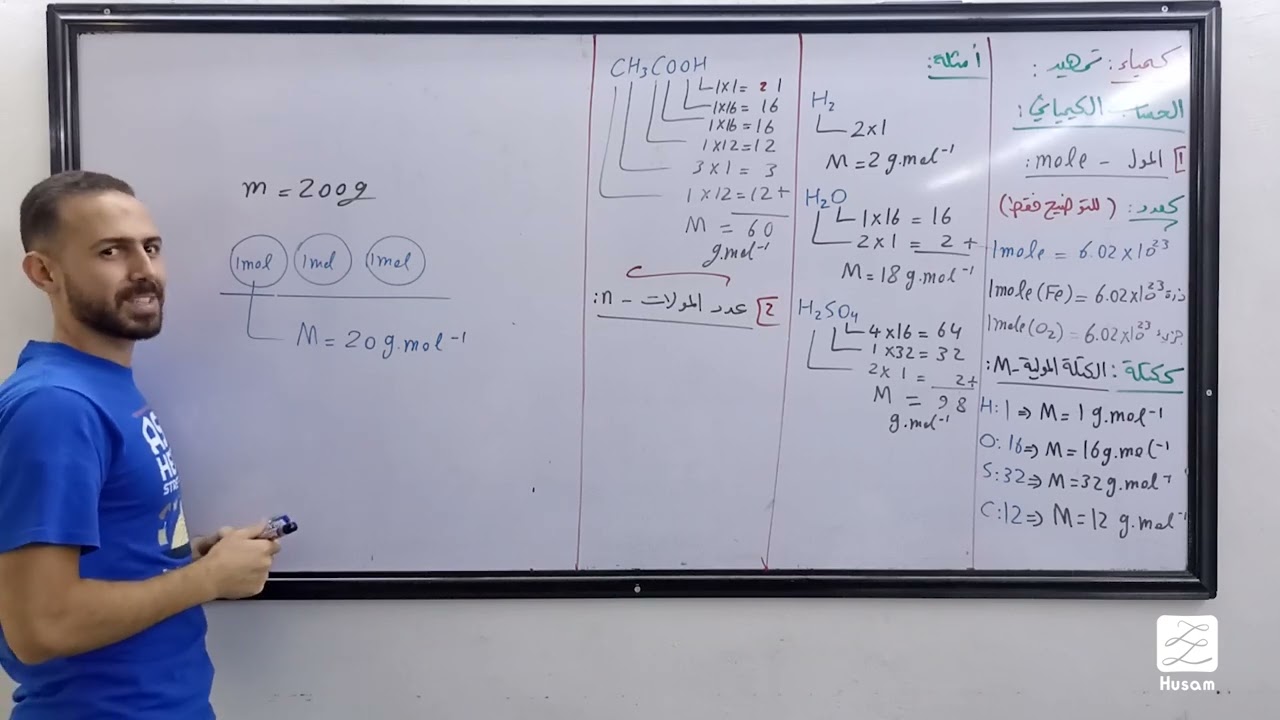 كيمياء: تمهيد:
الحساب الكيميائي:
1] المول - mole:
كعدد: (للتوضيح فقط)
1mole = 6.02x10²³
1mole(Fe) = 6.02x10²³ ذرة
1mole(O₂) = 6.02x10²³ جزيء
ككتلة: الكتلة المولية - M:
H:1 => M = 1 g.mol⁻¹
O:16 => M = 16g.mol⁻¹
S:32 => M = 32g.mol⁻¹
C:12 => M = 12 g.mol⁻¹
أمثلة:
H₂
2x1
M = 2 g.mol⁻¹
H₂O
1x16 = 16
2x1 = 2 +
M = 18 g.mol⁻¹
H₂SO₄
4x16 = 64
1x32 = 32
2x1 = 2+
M = 98
g.mol⁻¹
CH₃COOH
1x1 = 1
1x16 = 16
1x16 = 16
1x12 = 12
3x1 = 3
1x12 = 12+
M = 60
g.mol⁻¹
2] عدد المولات - n:
m = 200g
1mol 1mol 1mol
M = 20g.mol⁻¹
Husam